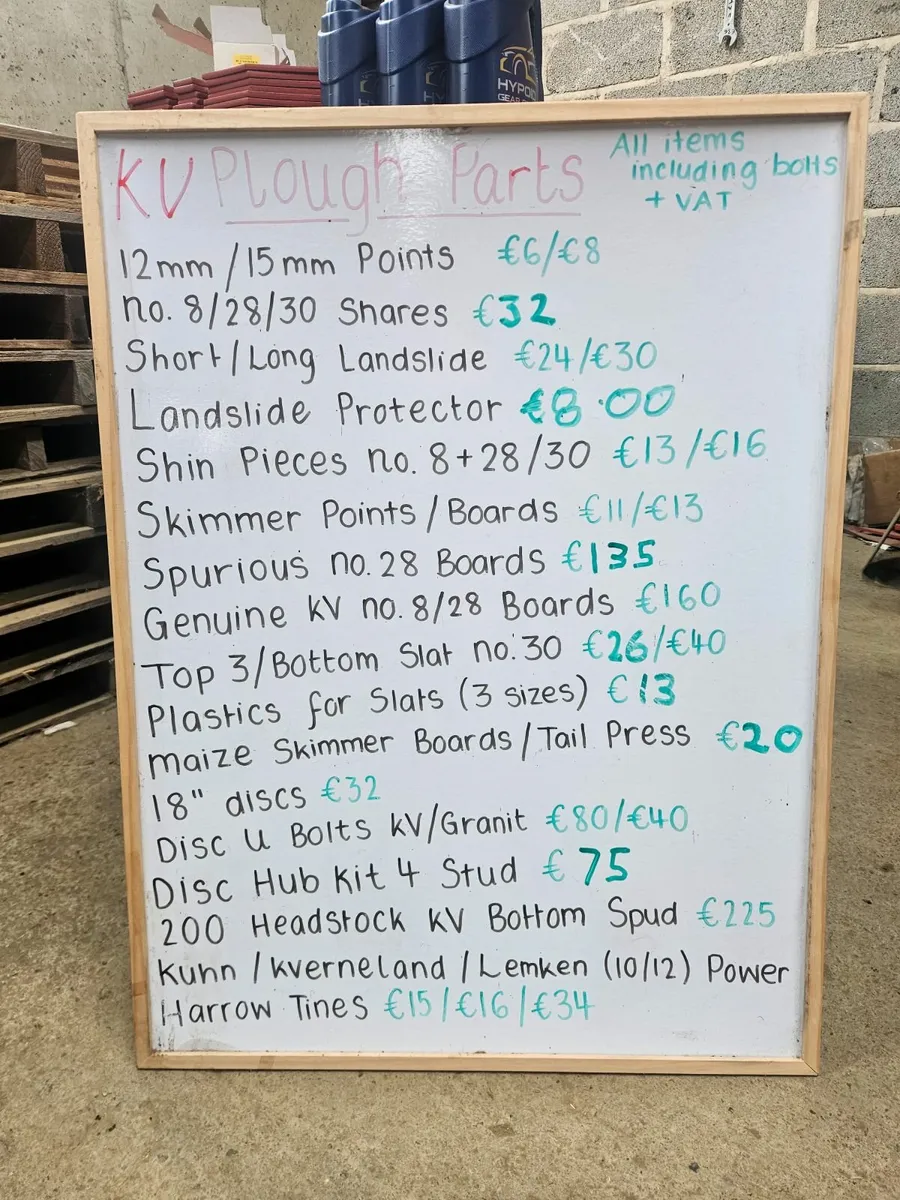 HYPOID
GEAR
KV Plough Parts
All items
including bolts
+ VAT
12mm/15mm Points €6/€8
no. 8/28/30 Shares €32
Short/Long Landslide €24/€30
Landslide Protector €8.00
Shin Pieces no. 8+28/30 €13/€16
Skimmer Points/Boards €11/€13
Spurious no.28 Boards €135
Genuine KV no. 8/28 Boards €160
Top 3/Bottom Slat no.30 €26/€40
Plastics for Slats (3 sizes) €13
maize Skimmer Boards/Tail Press €20
18" discs €32
Disc U Bolts KV/Granit €80/€40
Disc Hub Kit 4 Stud €75
200 Headstock KV Bottom Spud €225
Kuhn/kverneland/Lemken (10/12) Power
Harrow Tines €15/€16/€34